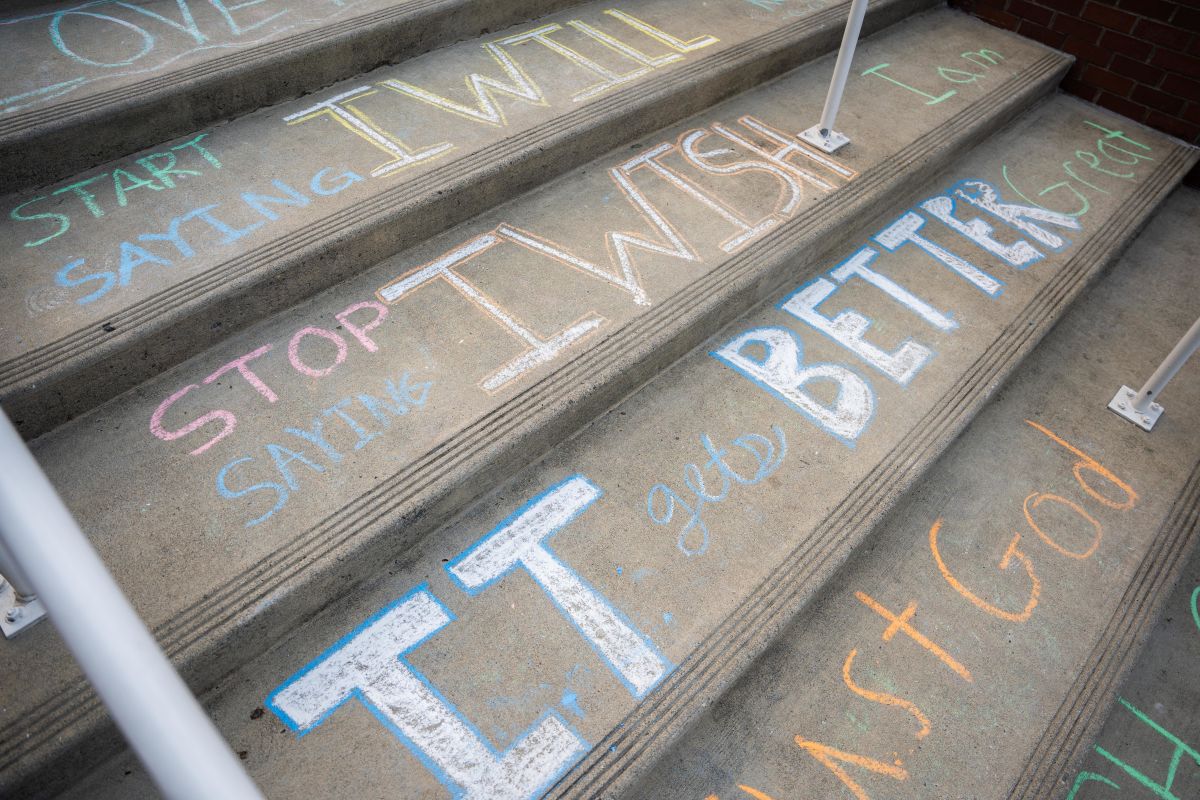 START
SAYING I WILL
I am
STOP
SAYING I WISH
Great
IT gets BETTER
God